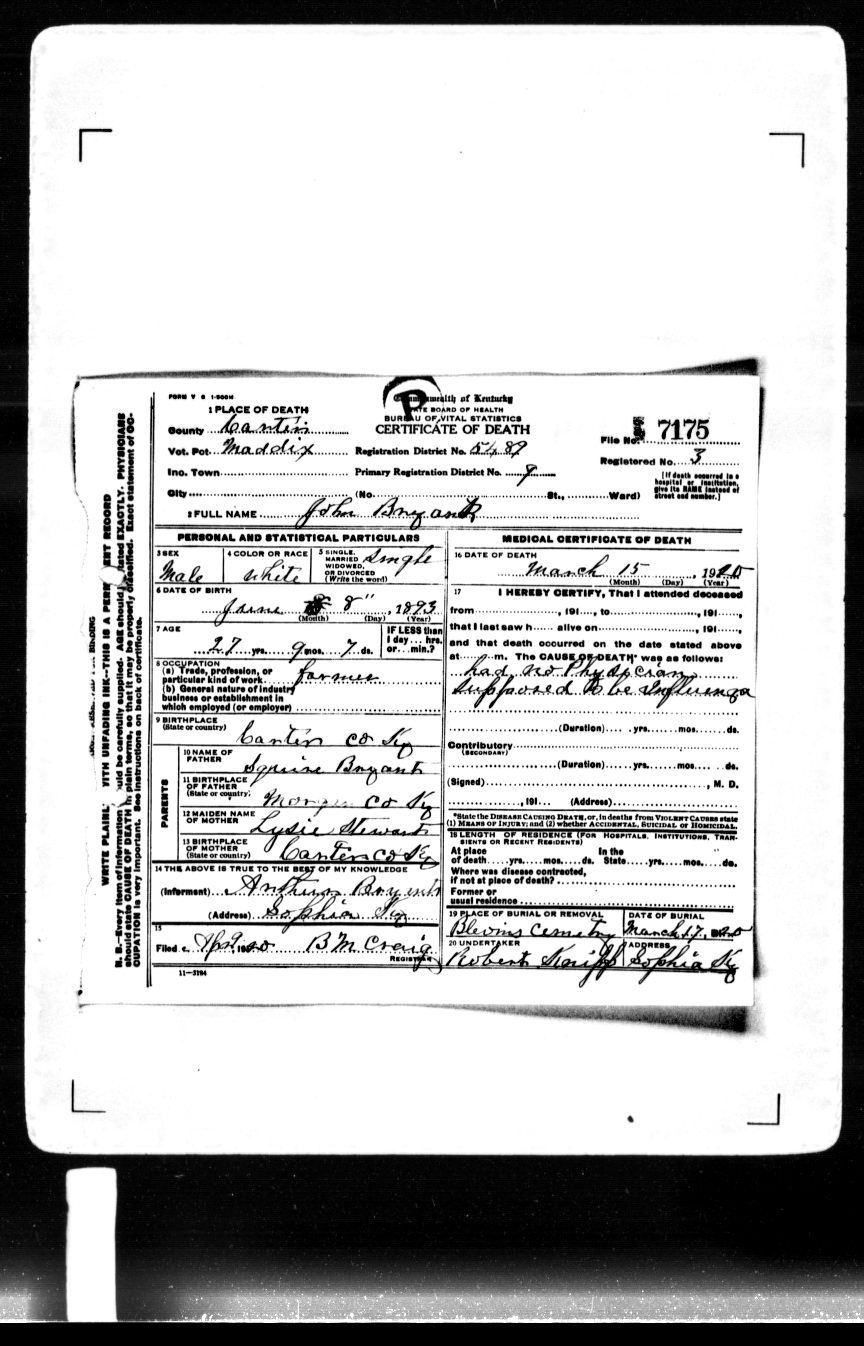 FORM V S 1-500M
Commonwealth of Kentucky
STATE BOARD OF HEALTH
BUREAU OF VITAL STATISTICS
CERTIFICATE OF DEATH
1 PLACE OF DEATH
County Carter
Vot. Pct. Maddix Registration District No. 5489
Inc. Town Primary Registration District No. 9
File No. 7175
Registered No. 3
City (No. St., Ward)
[If death occurred in a hospital or institution, give its NAME instead of street and number.]
2 FULL NAME John Bryant
PERSONAL AND STATISTICAL PARTICULARS
3 SEX Male
4 COLOR OR RACE White
5 SINGLE, MARRIED WIDOWED, OR DIVORCED (Write the word) Single
6 DATE OF BIRTH
June 8", 1893
(Month) (Day) (Year)
7 AGE
27 yrs. 9 mos. 7 ds.
IF LESS than 1 day... hrs. or... min.?
8 OCCUPATION
(a) Trade, profession, or particular kind of work farmer
(b) General nature of industry business or establishment in which employed (or employer)
9 BIRTHPLACE (State or country)
Carter Co Ky
PARENTS
10 NAME OF FATHER Squire Bryant
11 BIRTHPLACE OF FATHER (State or country) Morgan Co Ky
12 MAIDEN NAME OF MOTHER Lysie Stewart
13 BIRTHPLACE OF MOTHER (State or country) Carter Co Ky
14 THE ABOVE IS TRUE TO THE BEST OF MY KNOWLEDGE
(Informant) Bryant
(Address) Sophia Ky
15
Filed B M Craig
REGISTRAR
11-3184
MEDICAL CERTIFICATE OF DEATH
16 DATE OF DEATH
March 15, 1920
(Month) (Day) (Year)
17 I HEREBY CERTIFY, That I attended deceased
from, 191, to, 191,
that I last saw h alive on, 191,
and that death occurred on the date stated above
at m. The CAUSE OF DEATH* was as follows:
had no Physician
supposed to be Influenza
(Duration) yrs. mos. ds.
Contributory
(SECONDARY)
(Duration) yrs. mos. ds.
(Signed), M. D.
, 191 (Address)
*State the DISEASE CAUSING DEATH, or, in deaths from VIOLENT CAUSES state
(1) MEANS OF INJURY; and (2) whether ACCIDENTAL, SUICIDAL or HOMICIDAL.
18 LENGTH OF RESIDENCE (FOR HOSPITALS, INSTITUTIONS, TRANSIENTS OR RECENT RESIDENTS)
At place of death yrs. mos. ds. In the State yrs. mos. ds.
Where was disease contracted, if not at place of death?
Former or usual residence
19 PLACE OF BURIAL OR REMOVAL
Blevins Cemetry
DATE OF BURIAL
March 17, 1920
20 UNDERTAKER
Robert Knipp
ADDRESS
Sophia Ky
WITH UNFADING INK—THIS IS A
N. B.—Every item of information should be carefully supplied. AGE should be stated EXACTLY. PHYSICIANS
should state CAUSE OF DEATH in plain terms, so that it may be properly classified. Exact statement of OC-
CUPATION is very important. See instructions on back of certificate.